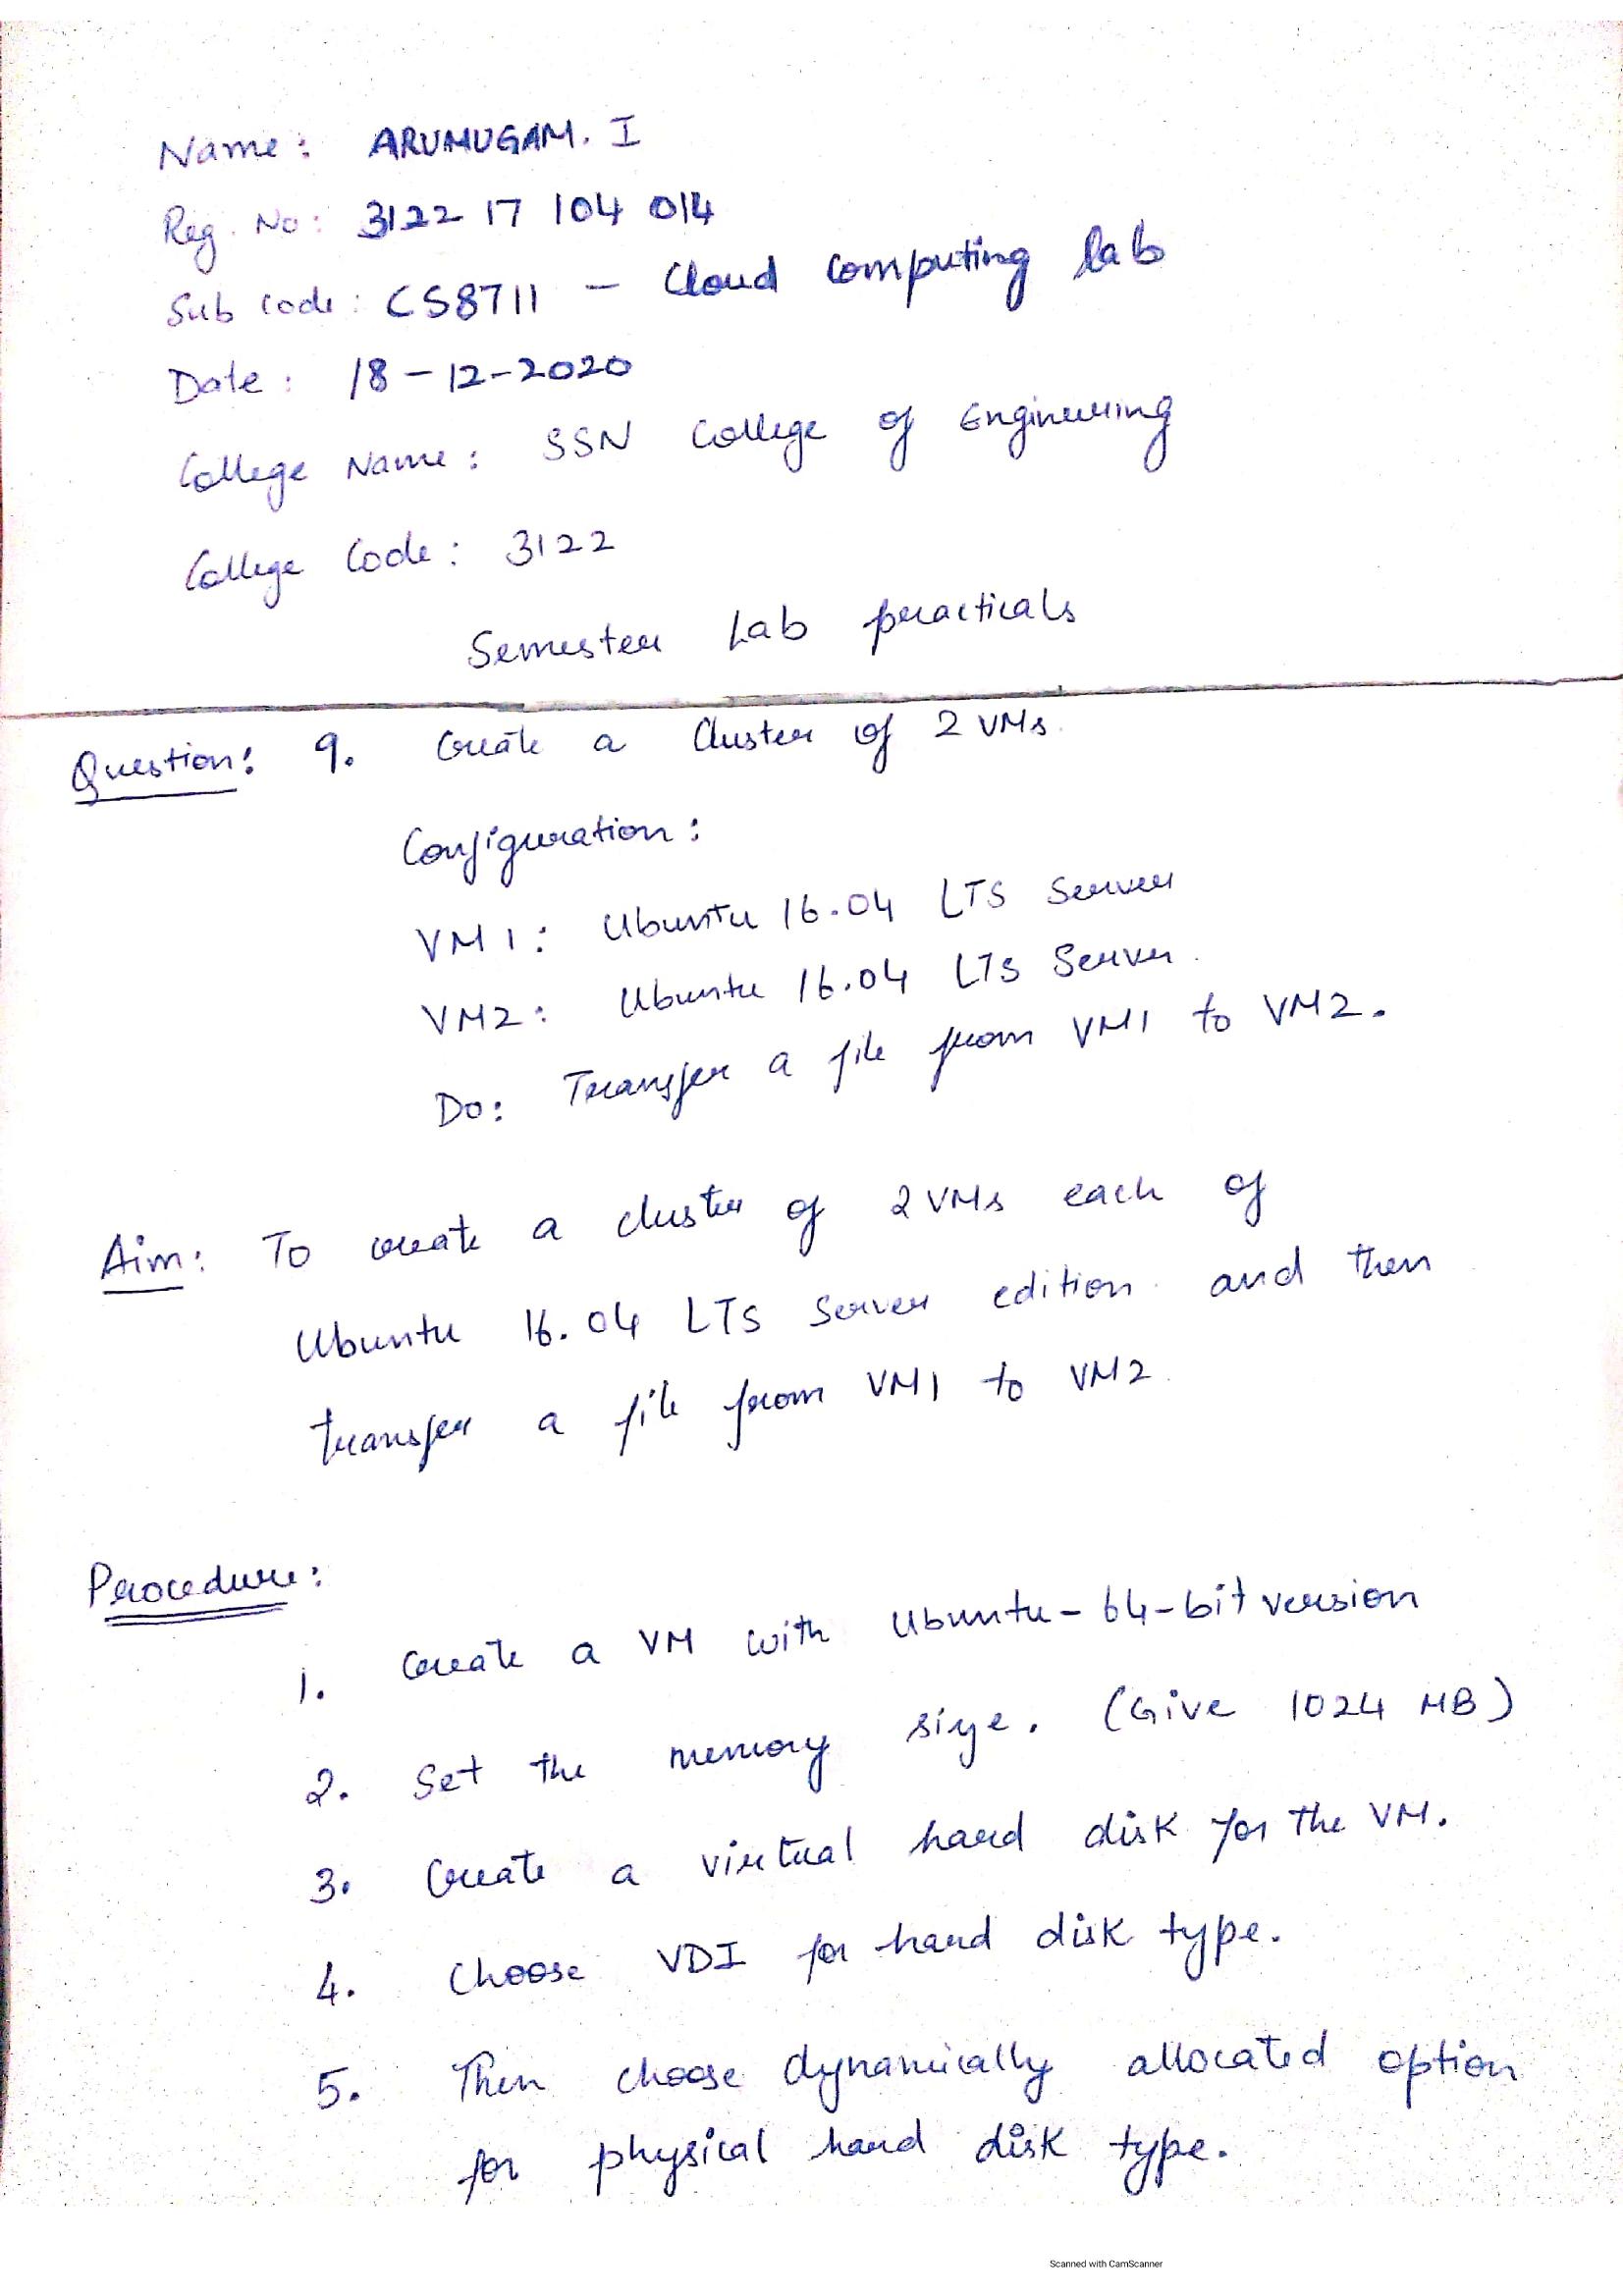 Name: ARUMUGAM. I
Reg. No: 3122 17 104 014
Sub code: CS8711 - Cloud Computing lab
Date: 18-12-2020
College Name: SSN College of Engineering
College Code: 3122
Semester Lab practicals
Question: 9. Create a Cluster of 2 VMs.
Configuration:
VM1: Ubuntu 16.04 LTS Server
VM2: Ubuntu 16.04 LTS Server.
Do: Transfer a file from VM1 to VM2.
Aim: To create a cluster of 2 VMs each of
Ubuntu 16.04 LTS Server edition and then
transfer a file from VM1 to VM2.
Procedure:
1. Create a VM with Ubuntu-64-bit version
2. Set the memory size. (Give 1024 MB)
3. Create a virtual hard disk for the VM.
4. Choose VDI for hard disk type.
5. Then choose dynamically allocated option
for physical hard disk type.
Scanned with CamScanner